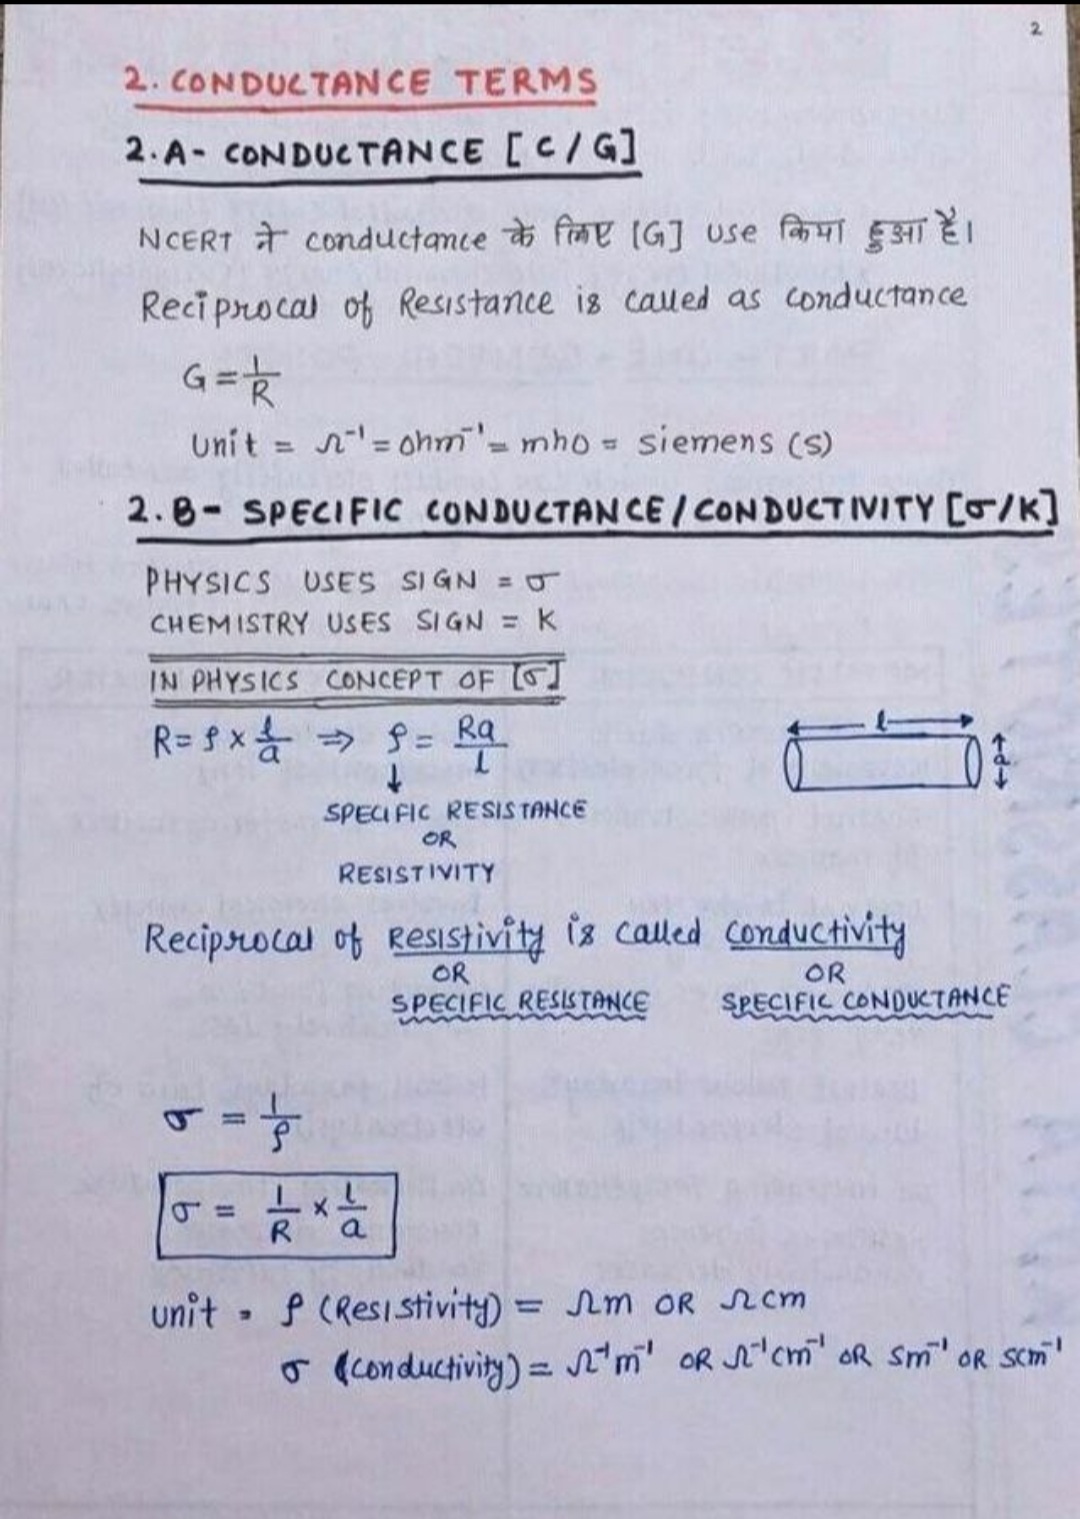 2
2. CONDUCTANCE TERMS
2.A- CONDUCTANCE [C/G]
NCERT ने conductance के लिए [G] use किया हुआ है।
Reciprocal of Resistance is called as conductance
G = 1/R
unit = Ω⁻¹ = ohm⁻¹ = mho = siemens (s)
2.B- SPECIFIC CONDUCTANCE/CONDUCTIVITY [σ/K]
PHYSICS USES SIGN = σ
CHEMISTRY USES SIGN = K
IN PHYSICS CONCEPT OF [σ]
R = ρ × l/a ⇒ ρ = Ra/l
l
a
↓
SPECIFIC RESISTANCE
OR
RESISTIVITY
Reciprocal of Resistivity is called conductivity
OR OR
SPECIFIC RESISTANCE SPECIFIC CONDUCTANCE
σ = 1/ρ
σ = 1/R × l/a
unit = ρ (Resistivity) = Ωm OR Ωcm
σ (conductivity) = Ω⁻¹m⁻¹ OR Ω⁻¹cm⁻¹ OR Sm⁻¹ OR scm⁻¹